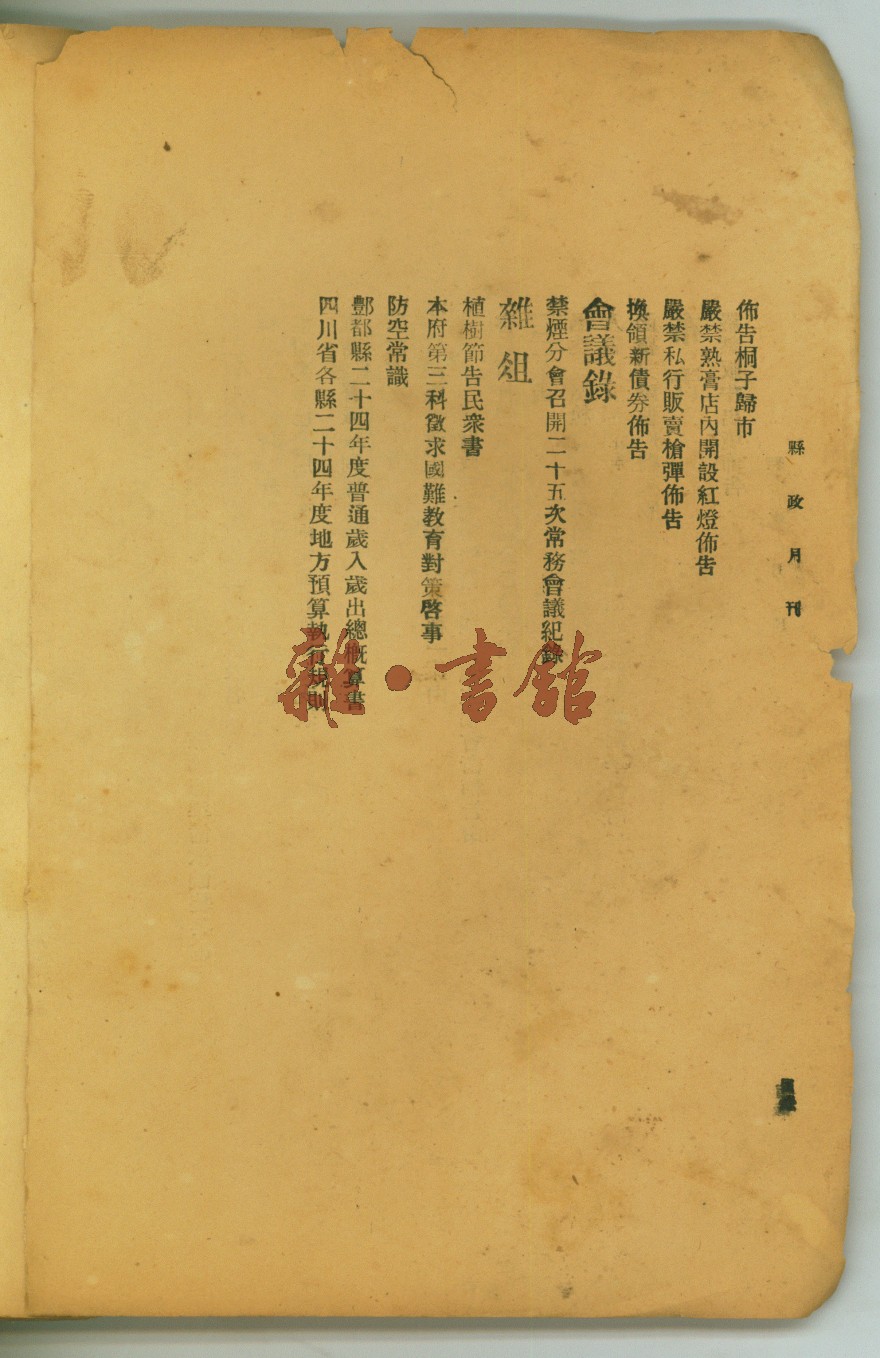 縣政月刊
佈告桐子歸市
嚴禁熟膏店內開設紅燈佈告
嚴禁私行販賣槍彈佈告
換領新債券佈告
會議錄
禁煙分會召開二十五次常務會議紀錄
雜俎
植樹節告民衆書
本府第三科徵求國難教育對策啓事
防空常識
酆都縣二十四年度普通歲入歲出總概算書
四川省各縣二十四年度地方預算執行規則
雜·書館